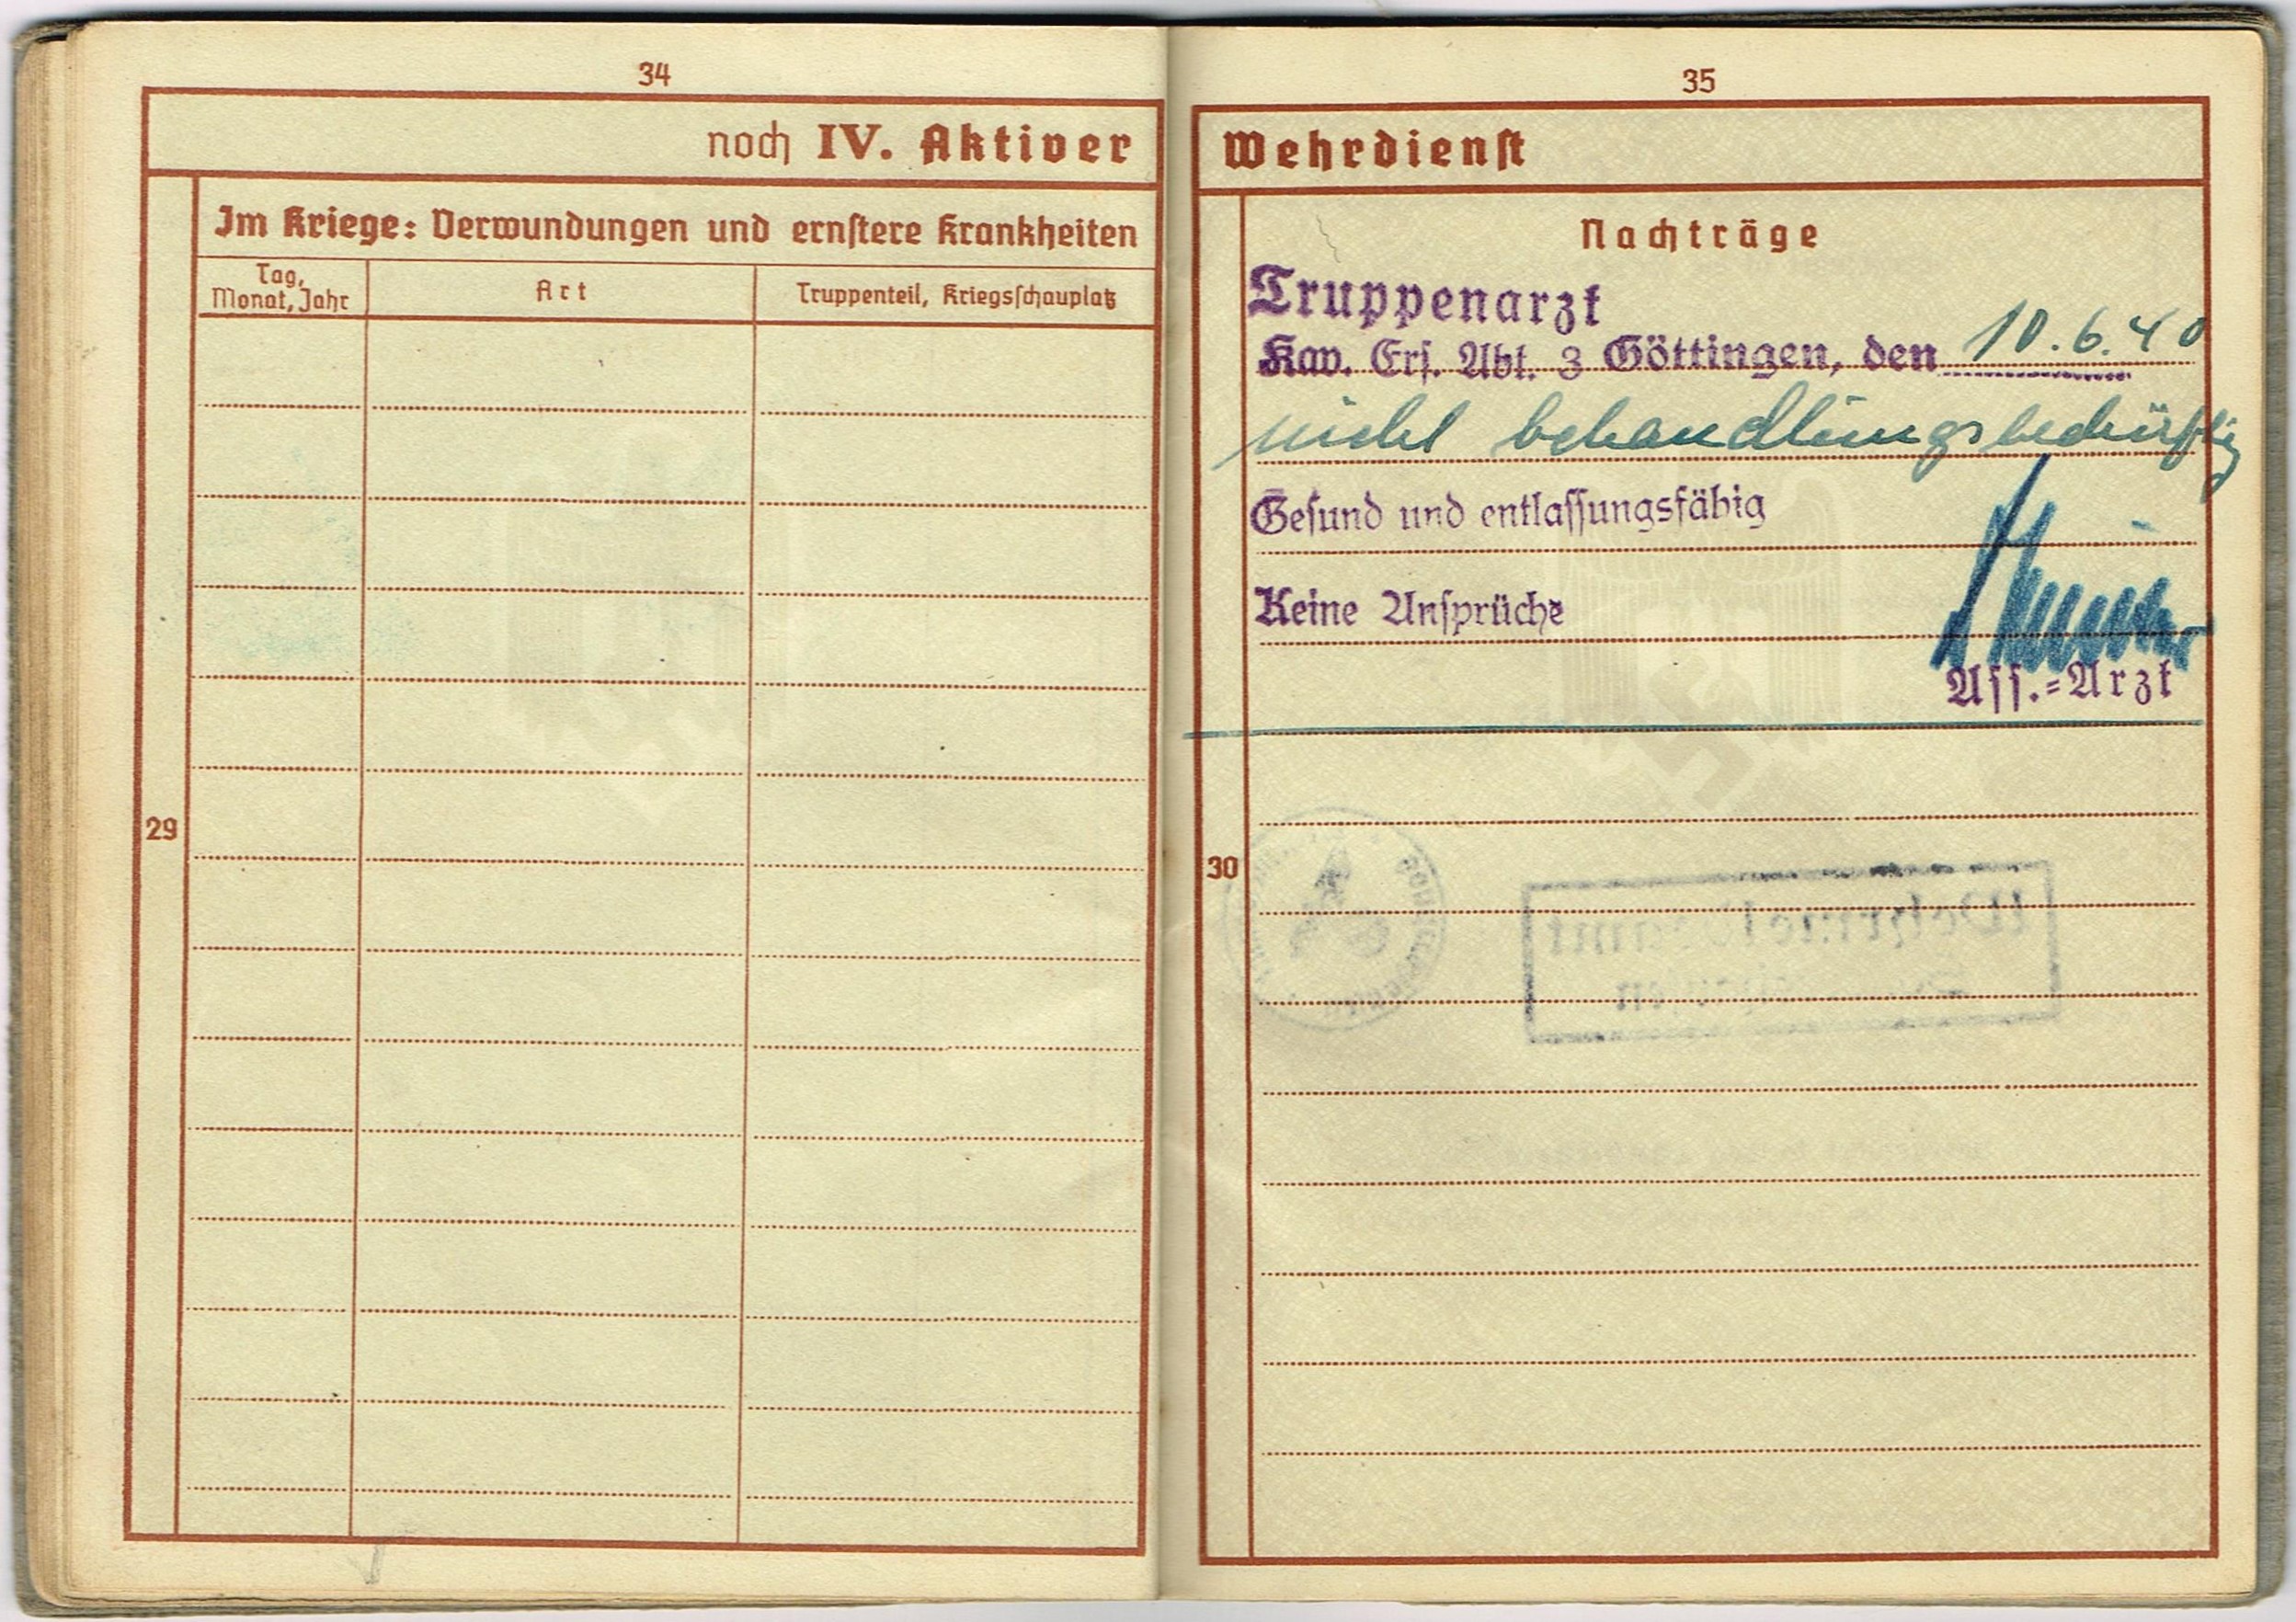 34
noch IV. Aktiver
Im Kriege: Verwundungen und ernstere Krankheiten
Tag,
Monat, Jahr
Art
Truppenteil, Kriegsschauplatz
29
35
Wehrdienst
Nachträge
Truppenarzt
Kav. Ers. Abt. 3 Göttingen, den 10.6.40
nicht behandlungsbedürftig
Gesund und entlassungsfähig
Keine Ansprüche
Ass.=Arzt
30